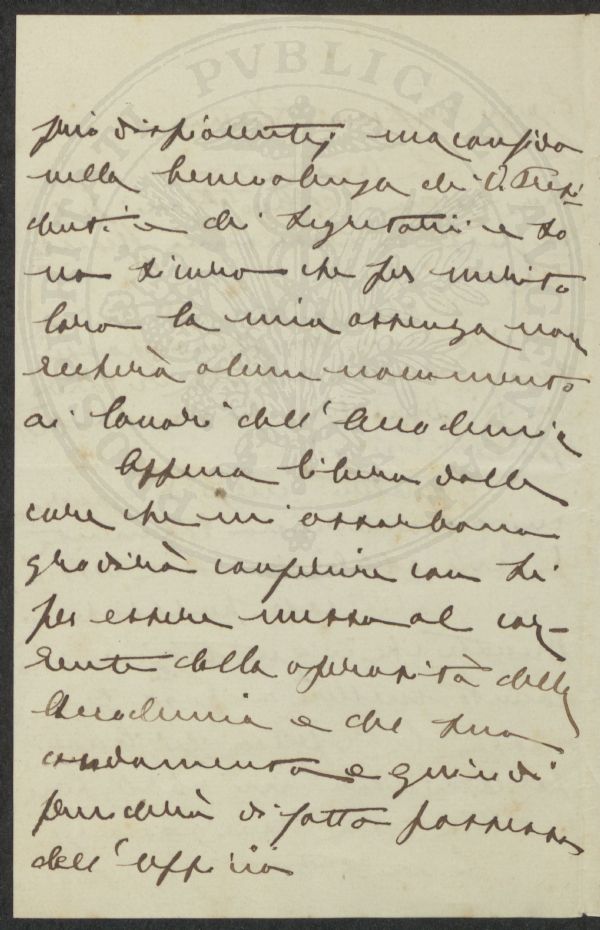 più dispiacente; ma confido
nella benevolenza dei V. Presi
denti e dei Segretarii e so
no sicuro che per merito
loro la mia assenza non
recherà alcun nocumento
ai lavori dell'Accademia
Appena libero dalle
cure che mi assorbono
gradirò conferire con Lei
per essere messo al cor-
rente della operosità della
Accademia e del suo
andamento e quindi
prenderò di fatto possesso
dell'ufficio